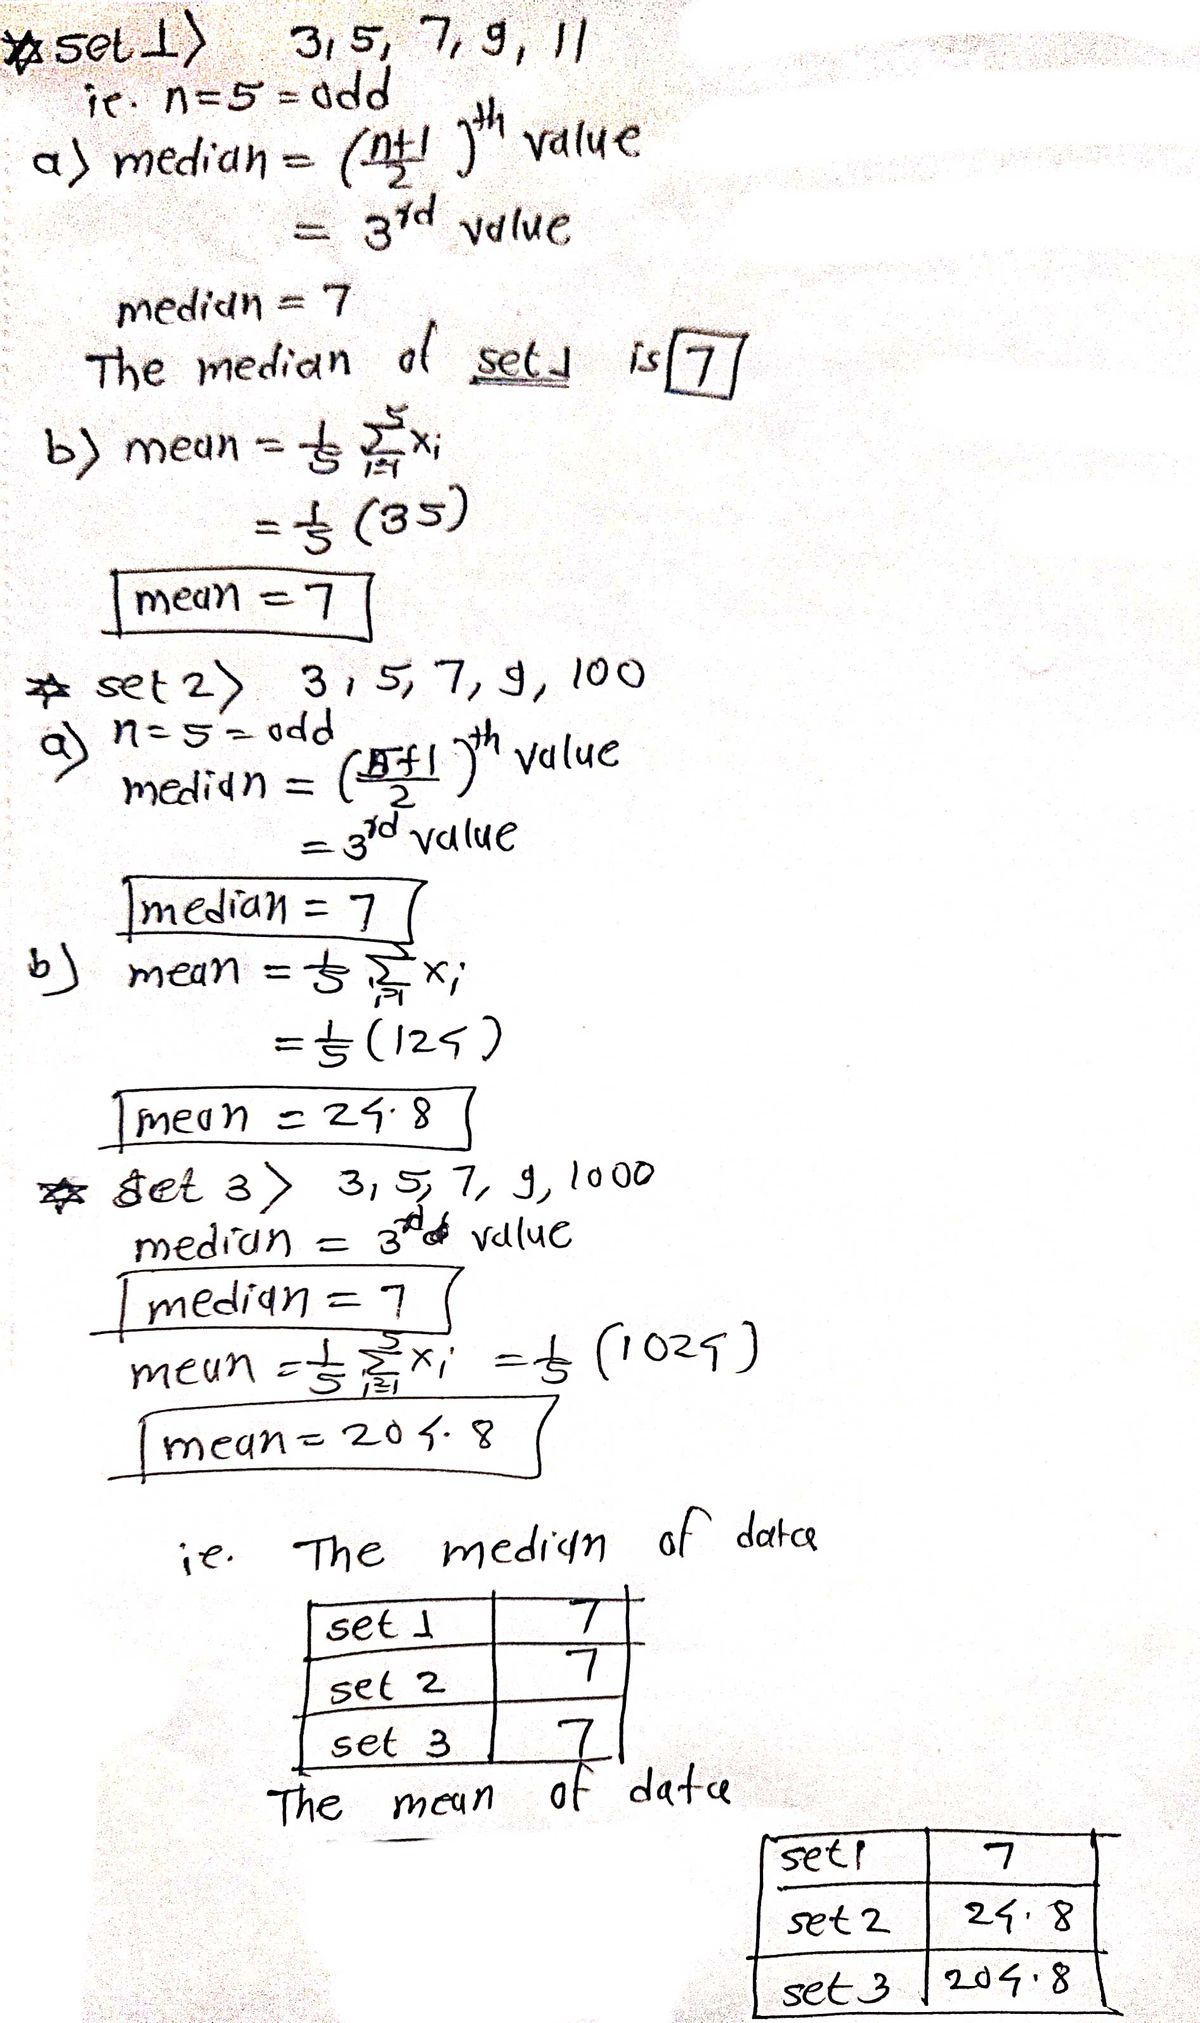 * set 1> 3, 5, 7, 9, 11
ie. n=5 = odd
a) median = (n+1/2)th value
= 3rd value
median = 7
The median of set 1 is 7
b) mean = 1/5 5∑i=1 xi
= 1/5 (35)
mean = 7
* set 2> 3, 5, 7, 9, 100
a) n=5 = odd
median = (5+1/2)th value
= 3rd value
median = 7
b) mean = 1/5 5∑i=1 xi
= 1/5 (124)
mean = 24.8
* set 3> 3, 5, 7, 9, 1000
median = 3rd value
median = 7
mean = 1/5 5∑i=1 xi = 1/5 (1024)
mean = 204.8
ie. The median of data
set 1 7
set 2 7
set 3 7
The mean of data
set 1 7
set 2 24.8
set 3 204.8